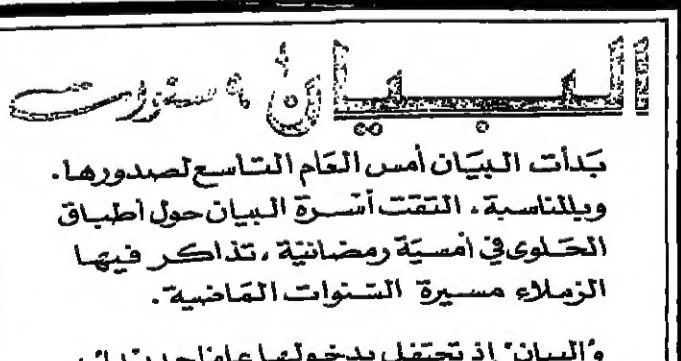 البيان ٩ سنوات
بدأت البيان أمس العام التاسع لصدورها.
وبالمناسبة، التقت أسرة البيان حول أطباق
الحلوى في أمسية رمضانية، تذاكر فيها
الزملاء مسيرة السنوات الماضية.
و"البيان" إذ تحتفل بدخولها عاما جديدا